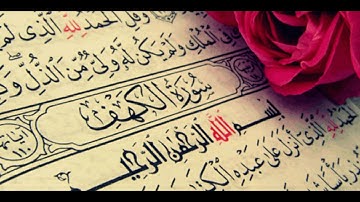 وَقُلِ الْحَمْدُ لِلَّهِ الَّذِي لَمْ
الْمُلْكِ وَلَمْ يَكُنْ لَهُ وَلِيٌّ مِنَ الذُّلِّ وَكَ
سُورَةُ الْكَهْفِ
آيَاتُهَا ١١٠
بِسْمِ اللَّهِ الرَّحْمَٰنِ الرَّحِيمِ
الَّذِي أَنْزَلَ عَلَىٰ عَبْدِهِ الْكِتَابَ